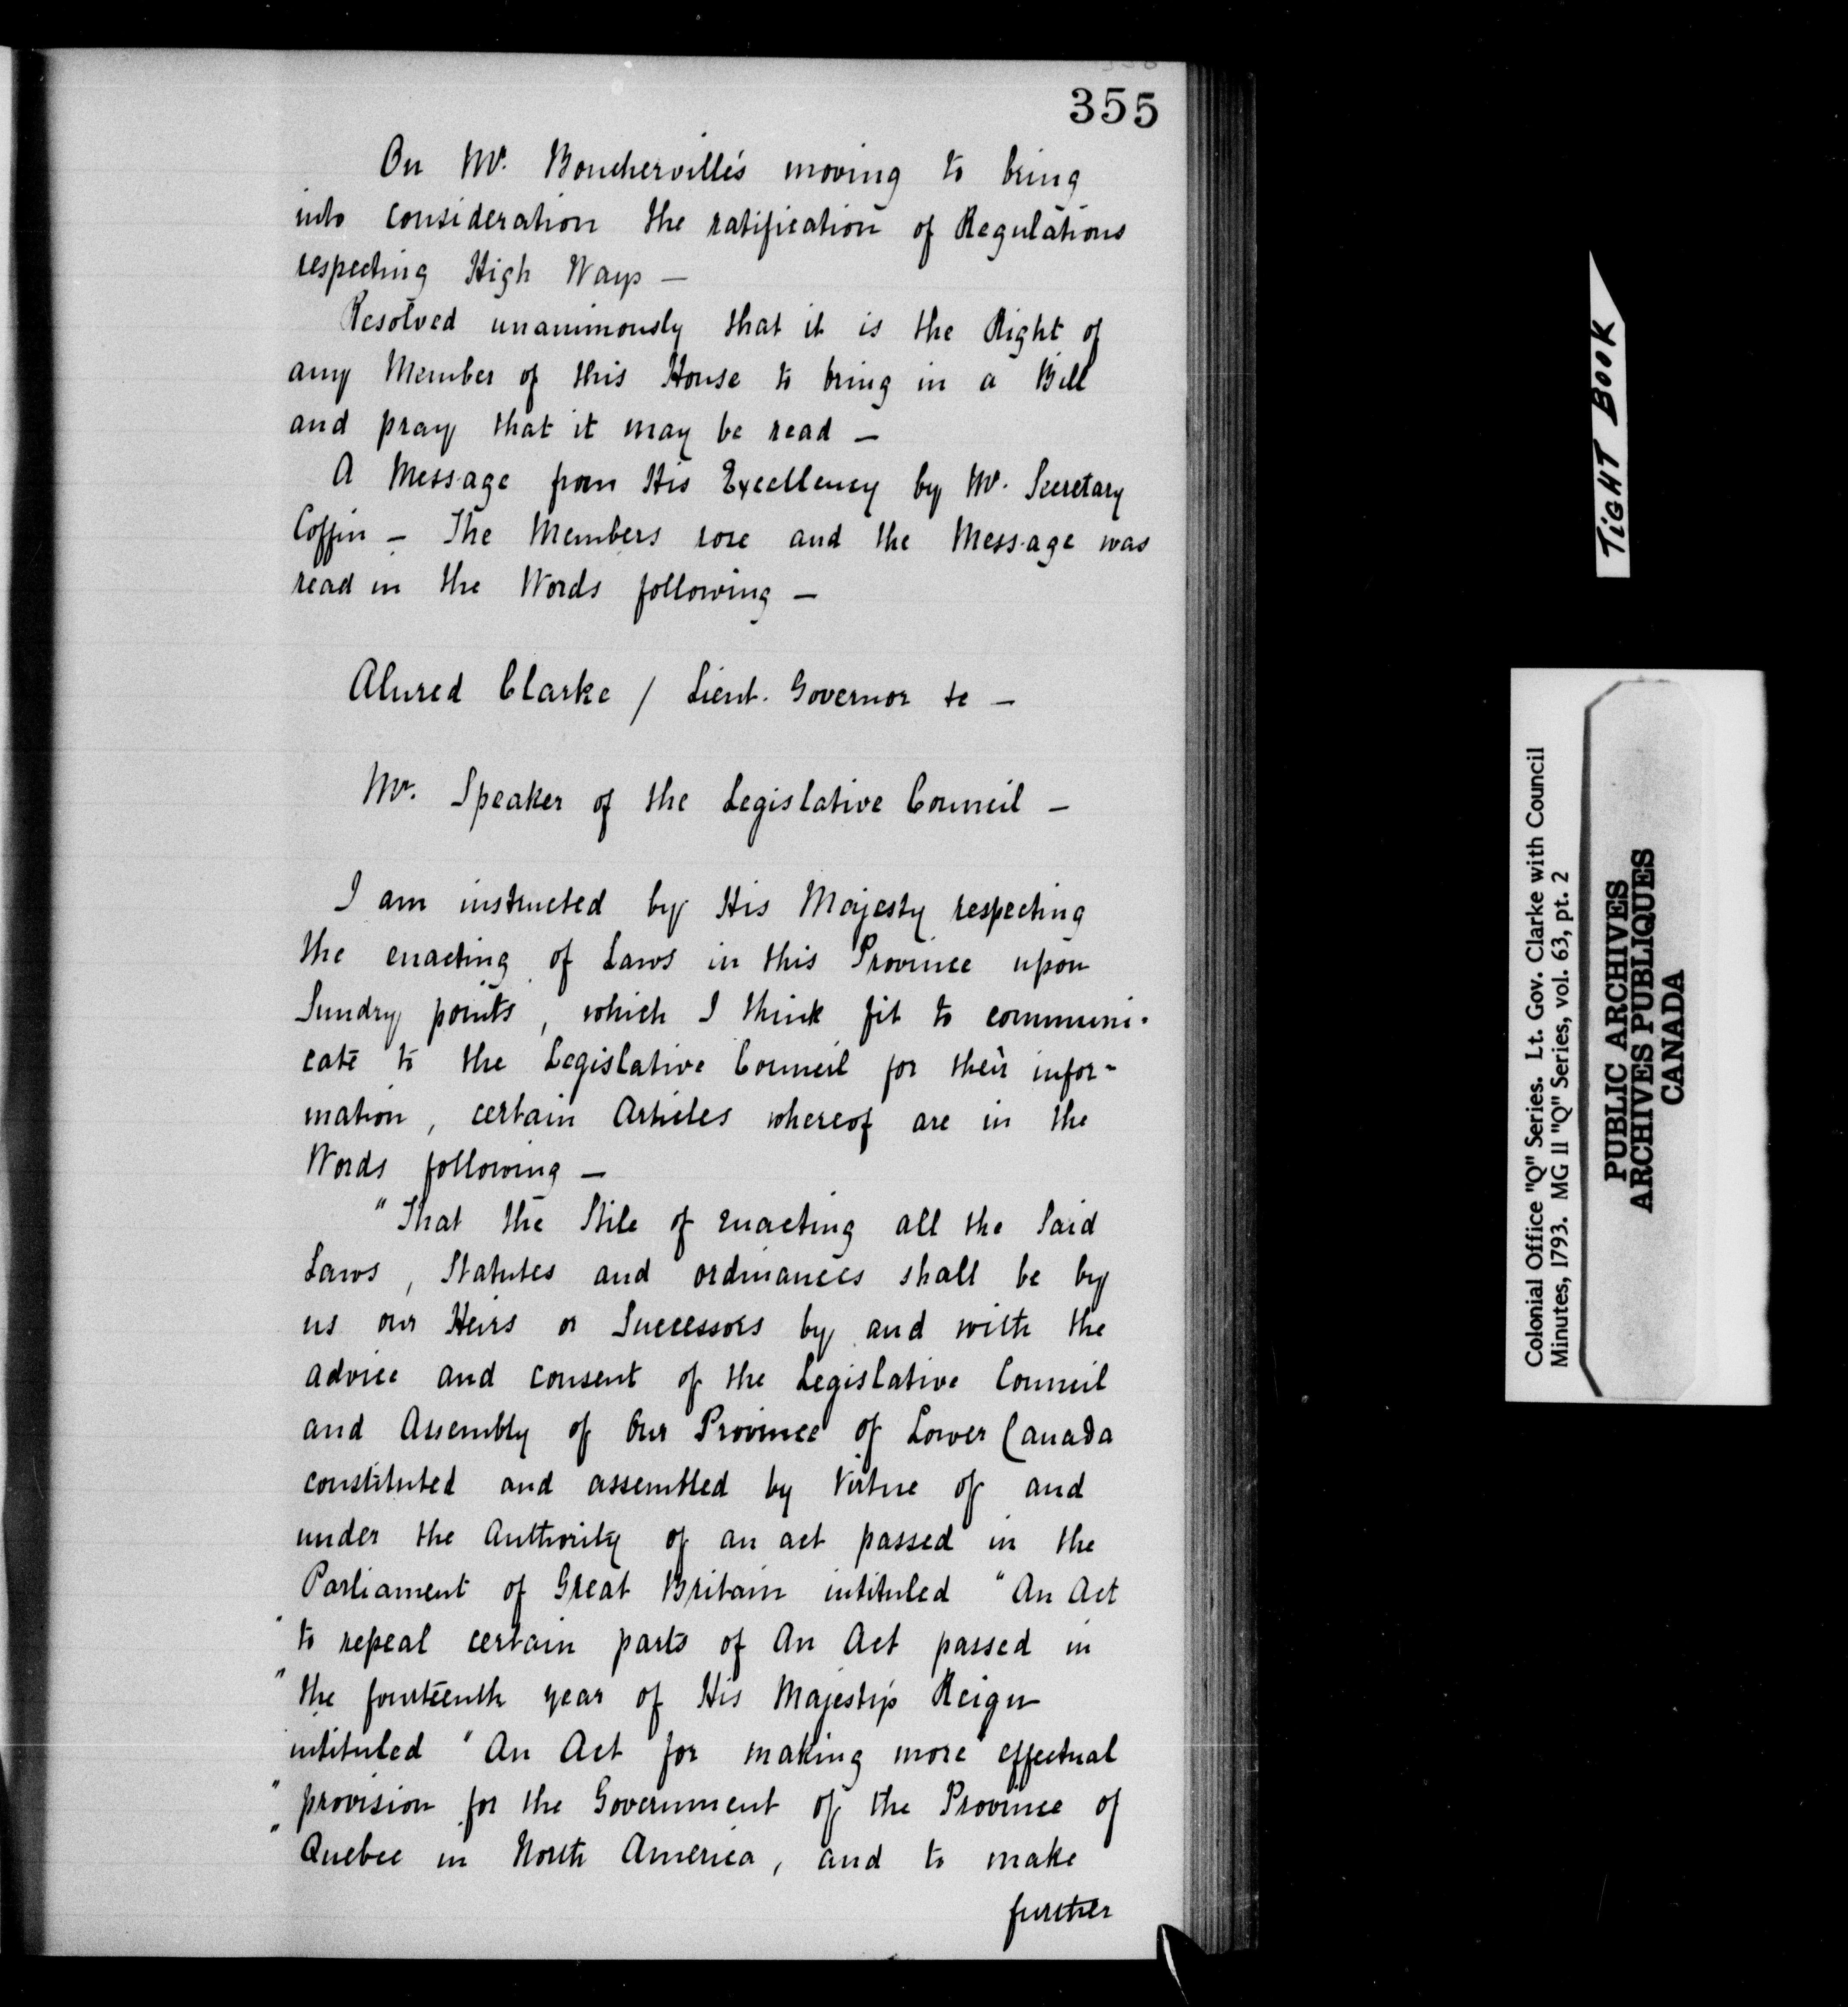 355
On Mr. Boucherville's moving to bring
into consideration the ratification of Regulations
respecting High Ways —
Resolved unanimously that it is the Right of
any Member of this House to bring in a Bill
and pray that it may be read —
A Message from His Excellency by Mr. Secretary
Coffin — The Members rose and the Message was
read in the Words following —
Alured Clarke / Lieut. Governor &c —
Mr. Speaker of the Legislative Council —
I am instructed by His Majesty respecting
the enacting of Laws in this Province upon
Sundry points, which I think fit to communi-
cate to the Legislative Council for their infor-
mation, certain Articles whereof are in the
Words following —
"That the Stile of enacting all the Said
Laws, Statutes and ordinances shall be by
us our Heirs or Successors by and with the
advice and consent of the Legislative Council
and Assembly of Our Province of Lower Canada
constituted and assembled by Virtue of and
under the Authority of an act passed in the
Parliament of Great Britain intituled "An Act
" to repeal certain parts of An Act passed in
" the fourteenth year of His Majesty's Reign
intituled "An Act for making more effectual
" provision for the Government of the Province of
" Quebec in North America, and to make
further
TIGHT BOOK
Colonial Office "Q" Series. Lt. Gov. Clarke with Council
Minutes, 1793. MG 11 "Q" Series, vol. 63, pt. 2
PUBLIC ARCHIVES
ARCHIVES PUBLIQUES
CANADA